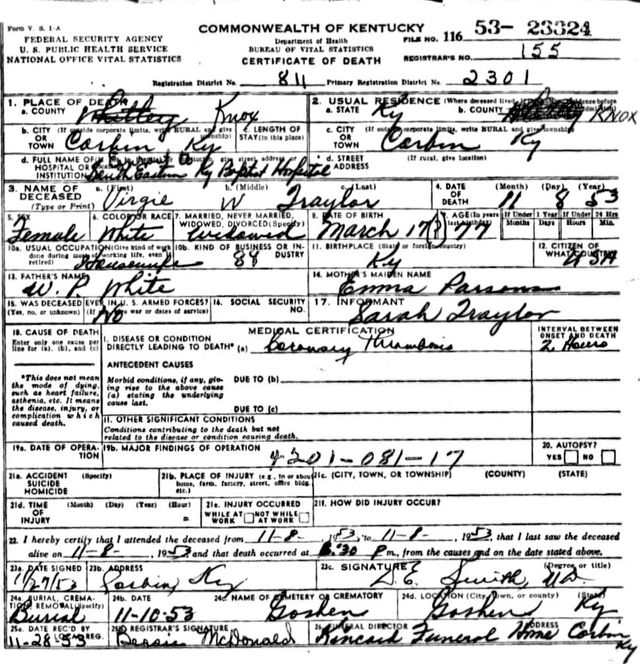 Form V. S. 1-A
COMMONWEALTH OF KENTUCKY
FILE NO. 116 53- 23324
FEDERAL SECURITY AGENCY
U. S. PUBLIC HEALTH SERVICE
NATIONAL OFFICE VITAL STATISTICS
Department of Health
BUREAU OF VITAL STATISTICS
CERTIFICATE OF DEATH
REGISTRAR'S NO. 155
Registration District No. 811 Primary Registration District No. 2301
1. PLACE OF DEATH
a. COUNTY Knox
2. USUAL RESIDENCE (Where deceased lived
a. STATE Ky b. COUNTY KNOX
b. CITY OR TOWN (If outside corporate limits, write RURAL and give township) Corbin Ky
c. LENGTH OF STAY (in this place)
c. CITY OR TOWN (If outside corporate limits, write RURAL and give township) Corbin Ky
d. FULL NAME OF HOSPITAL OR INSTITUTION South Eastern Ky Baptist Hospital
d. STREET ADDRESS (If rural, give location)
3. NAME OF DECEASED (Type or Print)
a. (First) Virgie b. (Middle) W c. (Last) Traylor
4. DATE OF DEATH (Month) (Day) (Year) 11 8 53
5. SEX Female
6. COLOR OR RACE White
7. MARRIED, NEVER MARRIED, WIDOWED, DIVORCED (Specify) Widowed
8. DATE OF BIRTH March 17
9. AGE (In years If Under 1 Year If Under 24 Hrs
Months Days Hours Min.
10a. USUAL OCCUPATION (Give kind of work done during most of working life, even if retired) Housewife
10b. KIND OF BUSINESS OR INDUSTRY
11. BIRTHPLACE (State or foreign country) Ky
12. CITIZEN OF WHAT COUNTRY? USA
13. FATHER'S NAME W. P. White
14. MOTHER'S MAIDEN NAME Emma Parsons
15. WAS DECEASED EVER IN U. S. ARMED FORCES? (Yes, no, or unknown) (If yes, give war or dates of service) No
16. SOCIAL SECURITY NO.
17. INFORMANT Sarah Traylor
18. CAUSE OF DEATH
Enter only one cause per line for (a), (b), and (c)
MEDICAL CERTIFICATION
INTERVAL BETWEEN ONSET AND DEATH
I. DISEASE OR CONDITION DIRECTLY LEADING TO DEATH* (a) Coronary Thrombosis 2 Hours
*This does not mean the mode of dying, such as heart failure, asthenia, etc. It means the disease, injury, or complication which caused death.
ANTECEDENT CAUSES
Morbid conditions, if any, giving rise to the above cause (a) stating the underlying cause last.
DUE TO (b)
DUE TO (c)
II. OTHER SIGNIFICANT CONDITIONS
Conditions contributing to the death but not related to the disease or condition causing death.
19a. DATE OF OPERATION
19b. MAJOR FINDINGS OF OPERATION
4201-081-17
20. AUTOPSY?
YES NO
21a. ACCIDENT SUICIDE HOMICIDE (Specify)
21b. PLACE OF INJURY (e.g., in or about home, farm, factory, street, office bldg. etc.)
21c. (CITY, TOWN, OR TOWNSHIP) (COUNTY) (STATE)
21d. TIME OF INJURY (Month) (Day) (Year) (Hour)
21e. INJURY OCCURRED
WHILE AT WORK NOT WHILE AT WORK
21f. HOW DID INJURY OCCUR?
22. I hereby certify that I attended the deceased from 11-8-, 1953, to 11-8-, 1953, that I last saw the deceased
alive on 11-8-, 1953 and that death occurred at 6:30 P m., from the causes and on the date stated above.
23a. DATE SIGNED 11/27/53
23b. ADDRESS Corbin, Ky
23c. SIGNATURE (Degree or title) Smith, M.D.
24a. BURIAL, CREMATION, REMOVAL (Specify) Burial
24b. DATE 11-10-53
24c. NAME OF CEMETERY OR CREMATORY Goshen
24d. LOCATION (City, town, or county) (State) Goshen Ky
25a. DATE REC'D BY LOCAL REG. 11-28-53
25b. REGISTRAR'S SIGNATURE Bessie McDonald
26. FUNERAL DIRECTOR ADDRESS Kincaid Funeral Home Corbin Ky